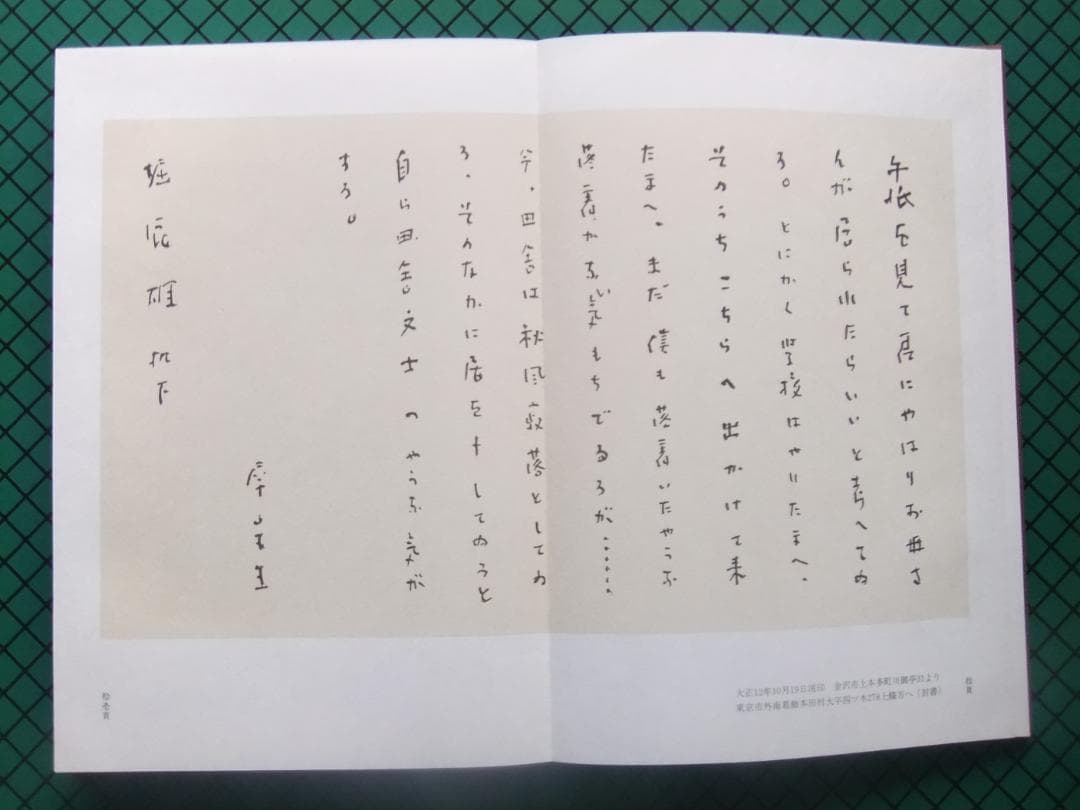 手紙を見て君にやはりお母さ
んが居られたらいいと考へてゐ
る。とにかく学校はやりたまへ。
そのうちこちらへ出かけて来
たまへ。まだ僕も落着いたやうな
落着かない気もちでゐるが……
今、田舎は秋風寂落としてゐ
る。そのなかに居を
自ら田舎文士のやうな気が
する。
犀生
堀辰雄 机下
大正12年10月19日消印 金沢市上本多町川御亭31より
東京市外南葛飾本田村大字四ツ木278上條方へ(封書)
拾頁
拾壱頁